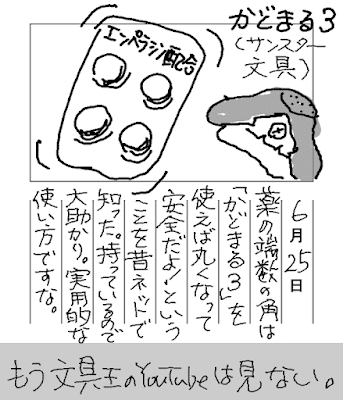 かどまる3
(サンスター
文具)
エンペラシン配合
6月25日
薬の端数の角は
「かどまる3」を
使えば丸くなって
安全だよ!という
ことを昔ネットで
知った。持っているので
大助かり。実用的な
使い方ですな。
もう文具王のYouTubeは見ない。